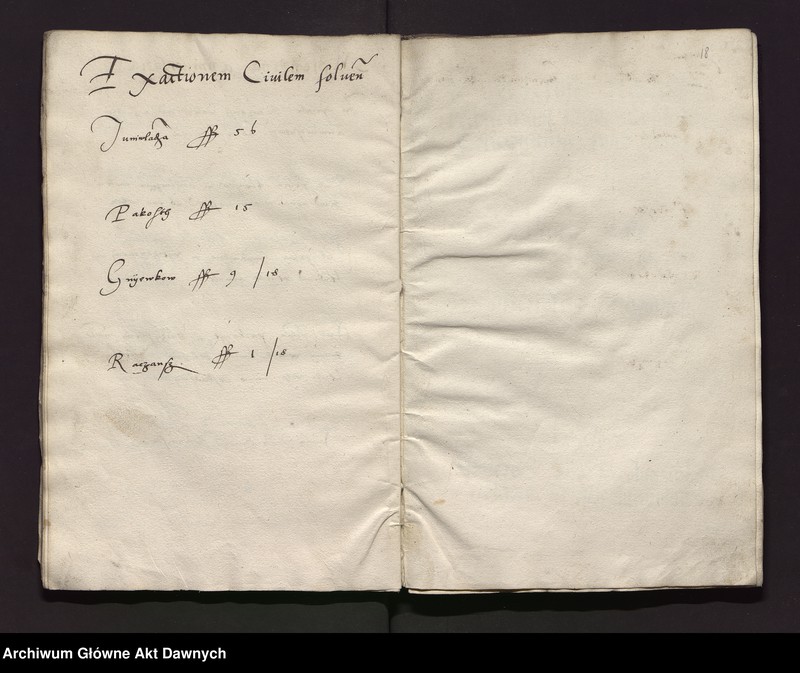 Exactionem Civilem solven̄
Juniwladia ff 56
Pakosch ff 15
Gnÿewkow ff 9 /18
Raczansz ff 1 /18
18
Archiwum Główne Akt Dawnych